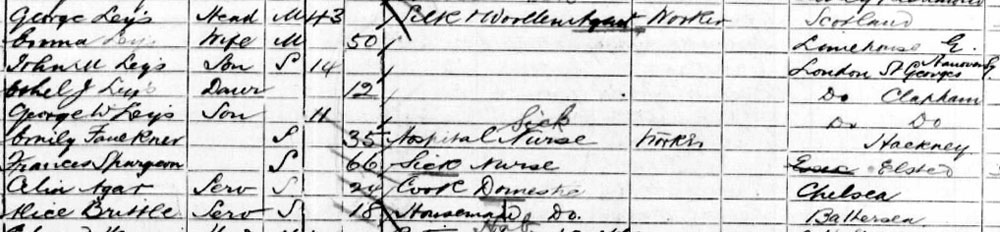 George Leys Head M 43 Silk & Woollen Agent Worker Scotland
Emma Leys Wife M 50 Limehouse E.
John M Leys Son S 14 London St Georges Hanover Sq
Ethel J Leys Daur 12 Do Clapham
George W Leys Son 11 Do Do
Emily Faulkner S 35 Hospital Sick Nurse Worker Hackney
Frances Spurgeon S 66 Sick Nurse Elsted
Agar Serv S 24 Cook Domestic Chelsea
Alice Brittle Serv S 18 Housemaid Do. Battersea